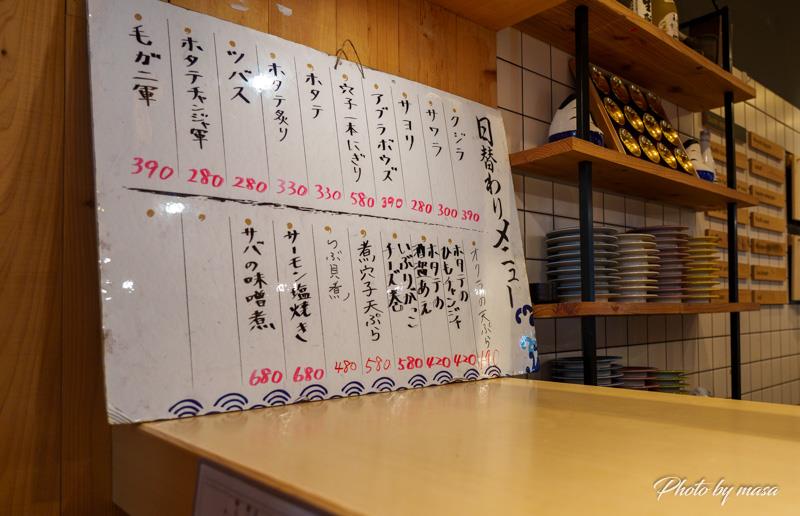 日替わりメニュー
クジラ 390
サワラ 300
サヨリ 280
アブラボウズ 390
穴子一本にぎり 580
ホタテ 330
ホタテ炙り 330
ツバス 280
ホタテチャンジャ軍 280
毛ガニ軍 390
の天ぷら
ホタテのひもチャンジャ 420
ホタテの酒盗あえ 420
いぶりがっこチーズ 580
煮穴子天ぷら 580
つぶ貝煮 480
サーモン塩焼き 680
サバの味噌煮 680
Photo by masa